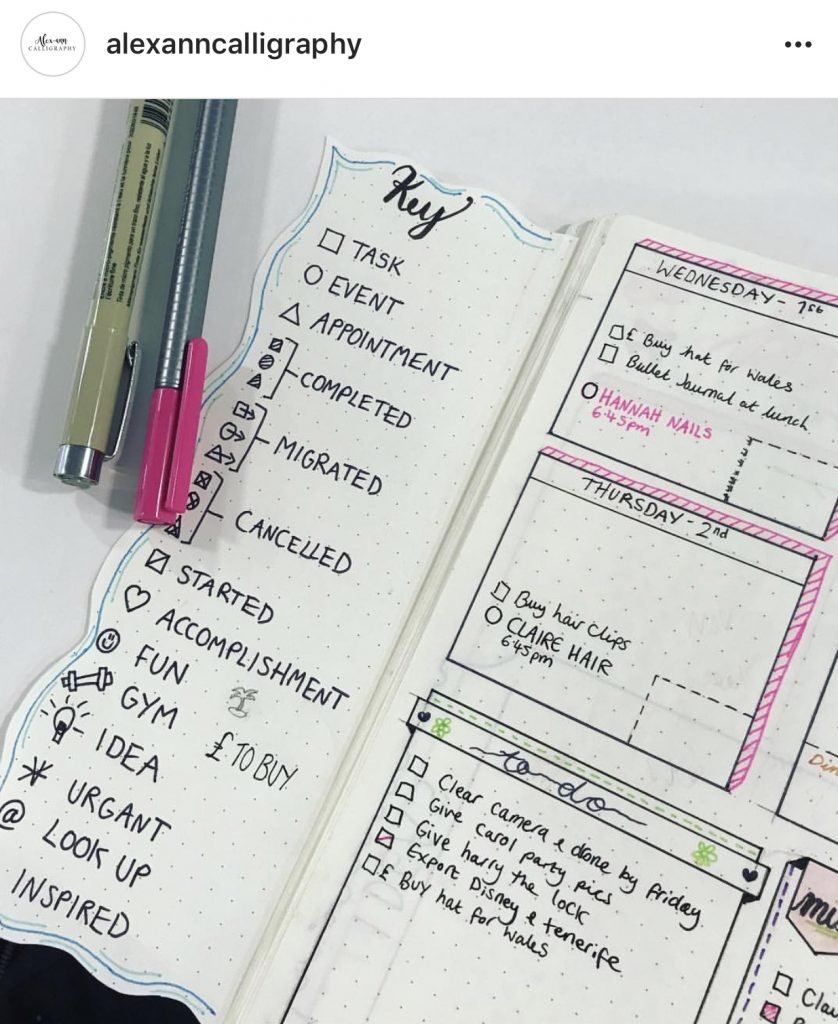 Alex-ann
CALLIGRAPHY
alexanncalligraphy
Key
TASK
EVENT
APPOINTMENT
COMPLETED
MIGRATED
CANCELLED
STARTED
ACCOMPLISHMENT
FUN
GYM
£ TO BUY
IDEA
URGANT
@ LOOK UP
INSPIRED
WEDNESDAY - 1st
£ Buy hat for Wales
Bullet Journal at lunch
HANNAH NAILS
6:45pm
THURSDAY - 2nd
Buy hair clips
CLAIRE HAIR
6:45pm
to-do
Clear camera & drone by friday
Give carol party pics
Give harry the lock
Export Disney & tenerife
£ Buy hat for Wales